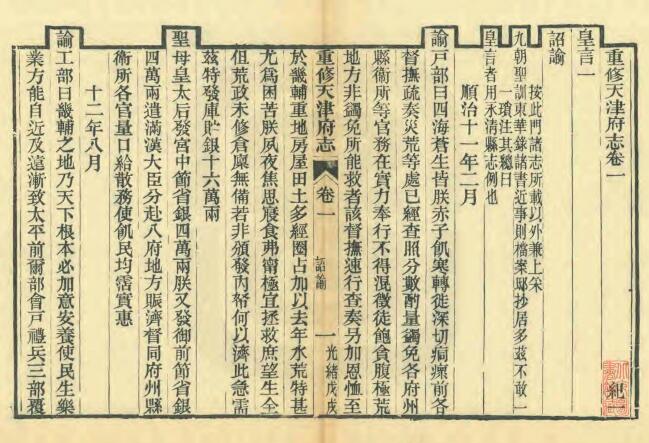 重修天津府志卷一
皇言一
詔諭
按此門諸志所載以外兼上采
九朝聖訓東華錄諸書近事則檔案邸抄居多茲不敢一
一瑣注其總曰
皇言者用永清縣志例也
順治十一年二月
諭戶部曰四海蒼生皆朕赤子飢寒轉徙深切痌瘝前各
督撫疏奏災荒等處已經查照分數酌量蠲免各府州
縣衞所等官務在實力奉行不得混徵徒飽貪腹極荒
地方非蠲免所能救者該督撫速行查奏另加恩恤至
重修天津府志
卷一
詔諭
一
光緒戊戌
於畿輔重地房屋田土多經圈占加以去年水荒特甚
尤爲困苦朕夙夜焦思寢食弗甯極宜拯救庶望生全
但荒政未修倉廩無備若非頒發內帑何以濟此急需
茲特發庫貯銀十六萬兩
聖
母皇太后發宮中節省銀四萬兩朕又發御前節省銀
四萬兩遣滿漢大臣分赴八府地方賑濟督同府州縣
衞所各官量口給散務使飢民均霑實惠
十二年八月
諭工部曰畿輔之地乃天下根本必加意安養使民生樂
業方能自近及遠漸致太平前爾部會戶禮兵三部覆
紀一